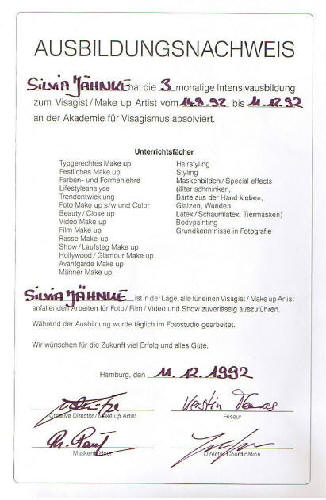 AUSBILDUNGSNACHWEIS
Silvia Jähnke hat die 3 monatige Intensivausbildung
zum Visagist / Make up Artist vom 14.9.92 bis 11.12.92
an der Akademie für Visagismus absolviert.
Unterrichtsfächer
Typgerechtes Make up
Festliches Make up
Farben- und Formenlehre
Lifestyleanalyse
Trendentwicklung
Foto Make up s/w und Color
Beauty / Close up
Video Make up
Film Make up
Rasse Make up
Show / Laufsteg Make up
Hollywood / Glamour Make up
Avantgarde Make up
Männer Make up
Hairstyling
Styling
Maskenbilden / Special effects
(älter schminken,
Bärte aus der Hand kleben,
Glatzen, Wunden,
Latex / Schaumlatex, Tiermasken)
Bodypainting
Grundkenntnisse in Fotografie
Silvia Jähnke ist in der Lage, alle für einen Visagist / Make up Artist
anfallenden Arbeiten für Foto / Film / Video und Show zuverlässig auszuführen.
Während der Ausbildung wurde täglich im Fotostudio gearbeitet.
Wir wünschen für die Zukunft viel Erfolg und alles Gute.
Hamburg, den 11.12.1992
Creative Director / Make up Artist
Friseur
Maskenbildner